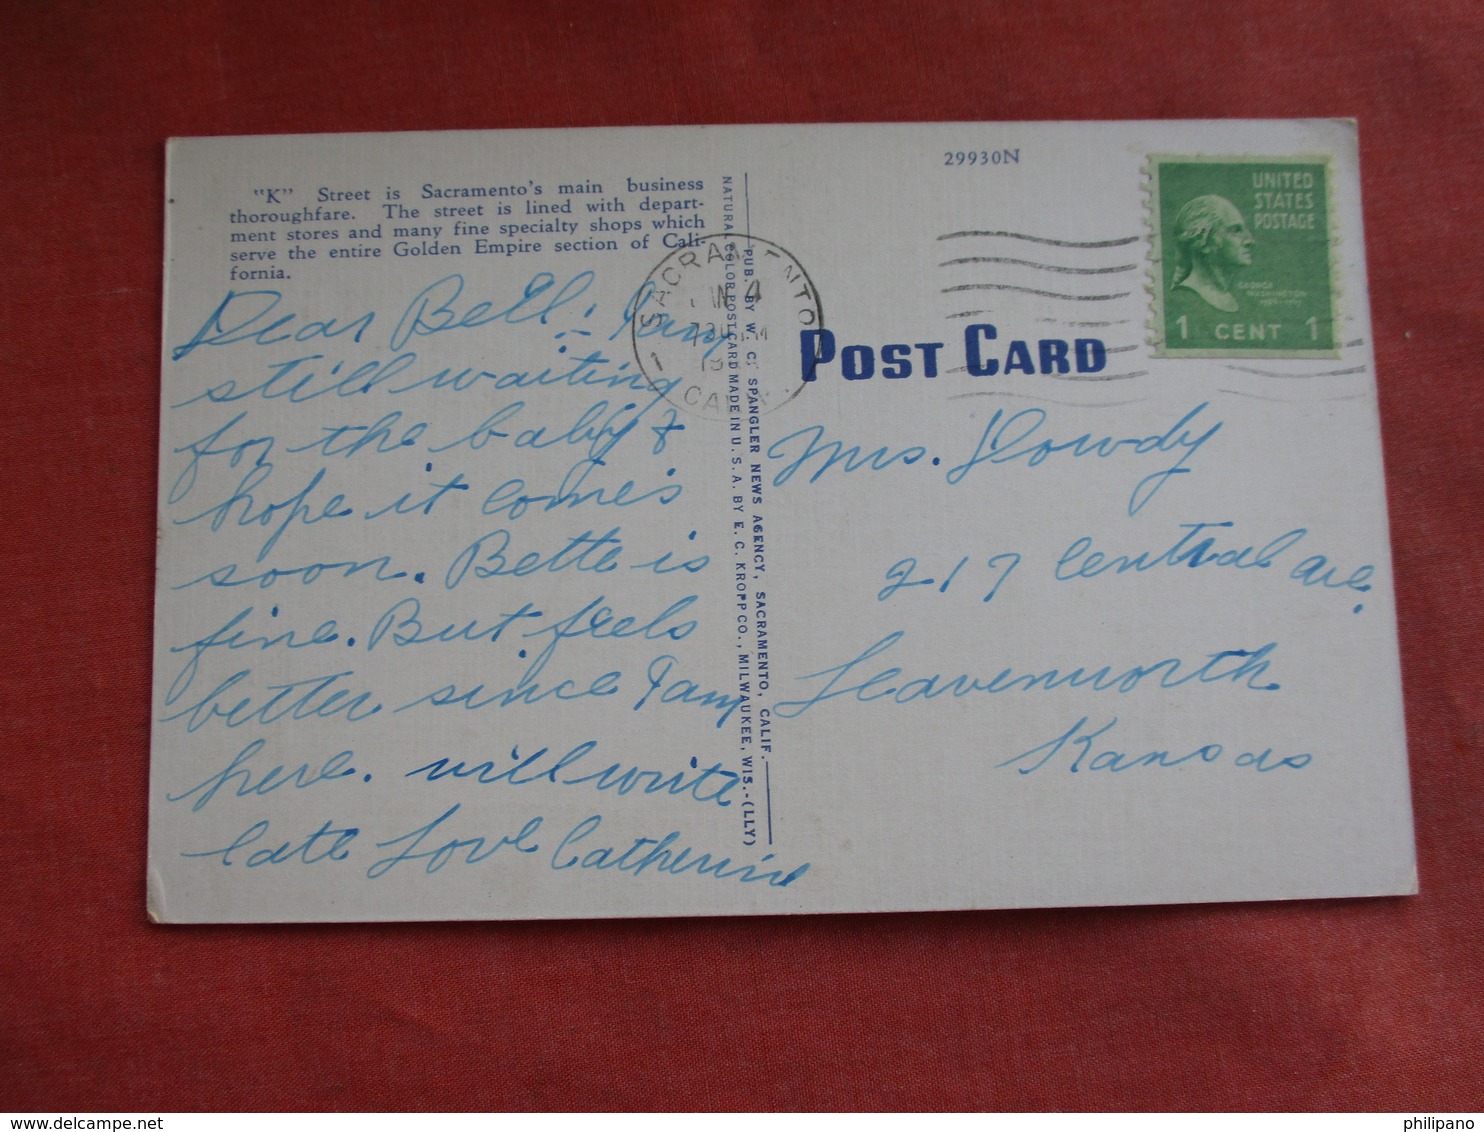 29930N
"K" Street is Sacramento's main business
thoroughfare. The street is lined with depart-
ment stores and many fine specialty shops which
serve the entire Golden Empire section of Cali-
fornia.
Dear Bell: Am
still waiting
for the baby &
hope it comes
soon. Bette is
fine. But feels
better since I am
here. will write
late Love Catherine
NATURAL COLOR POST CARD MADE IN U. S. A. BY E. C. KROPP CO., MILWAUKEE, WIS.-(LLY)
PUB. BY W. C. SPANGLER NEWS AGENCY, SACRAMENTO, CALIF.
SACRAMENTO
4
730
1
CALIF.
POST CARD
UNITED
STATES
POSTAGE
GEORGE
WASHINGTON
1 CENT 1
Mrs. Dowdy
217 Central ave.
Leavenworth
Kansas
delcampe.net
philipano